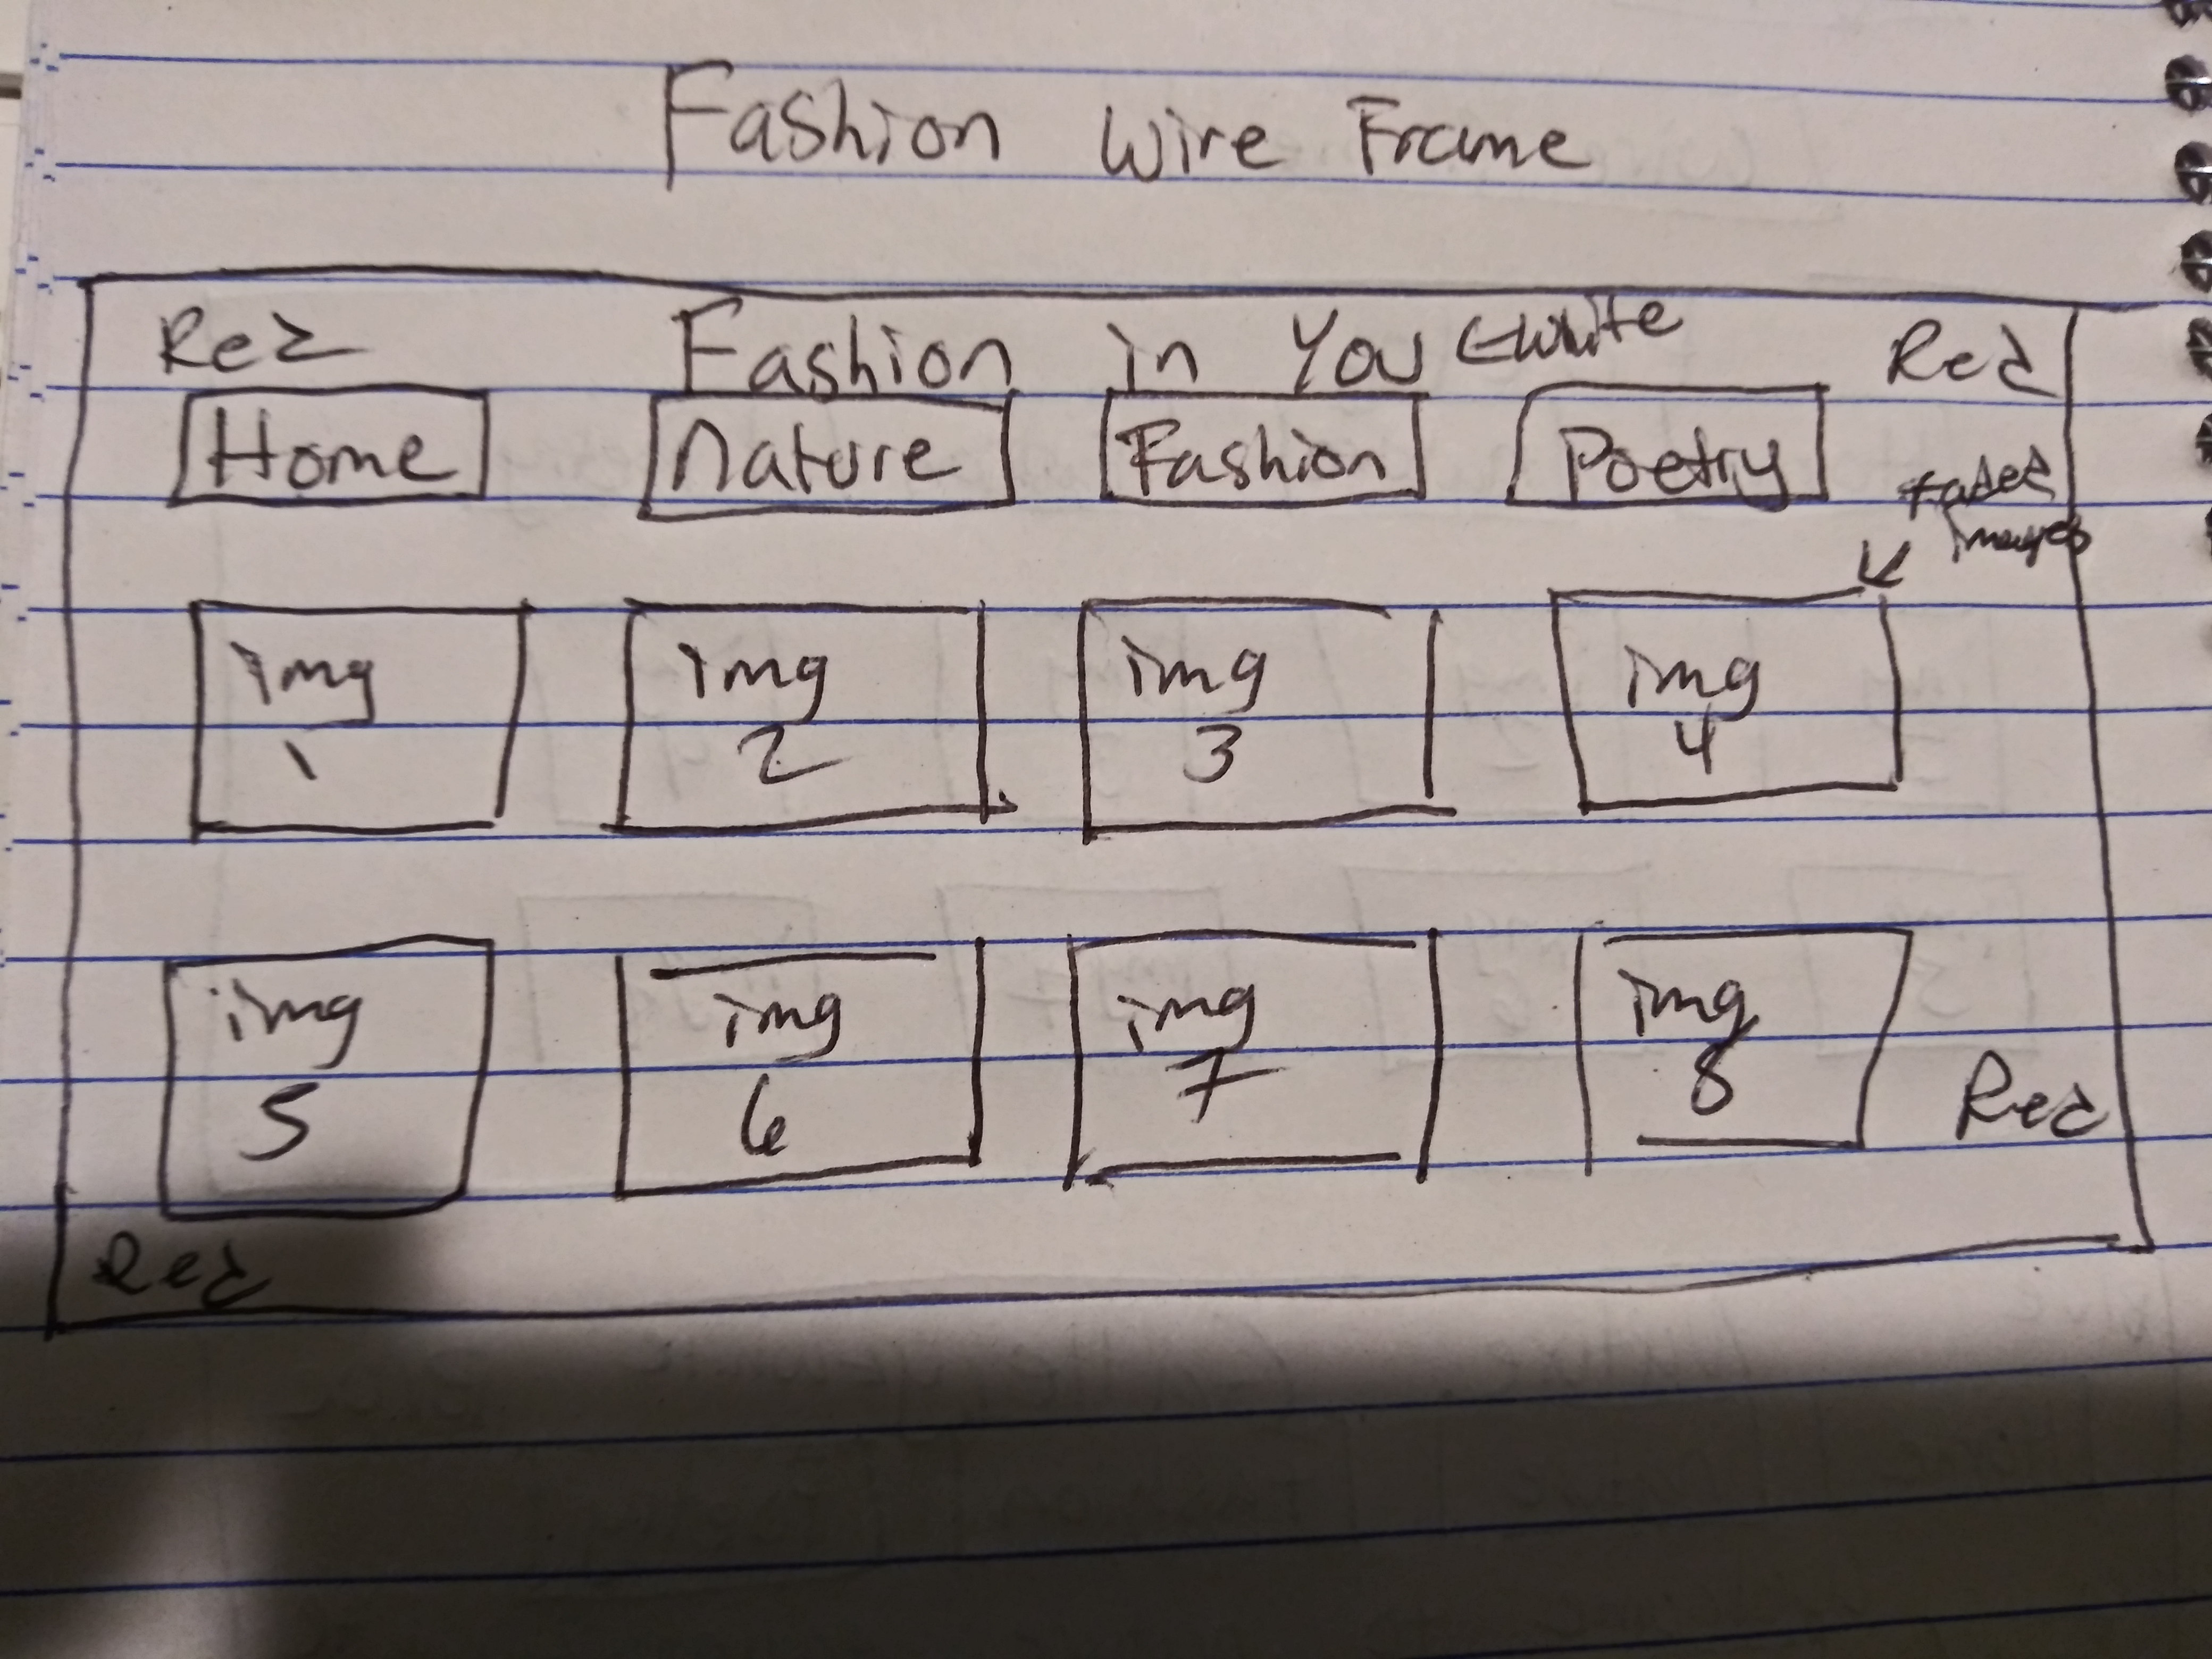 Fashion Wire Frame
Red Fashion in You white Red
Home Nature Fashion Poetry
images
img img img img
1 2 3 4
img img img img
5 6 7 8
Red
Red